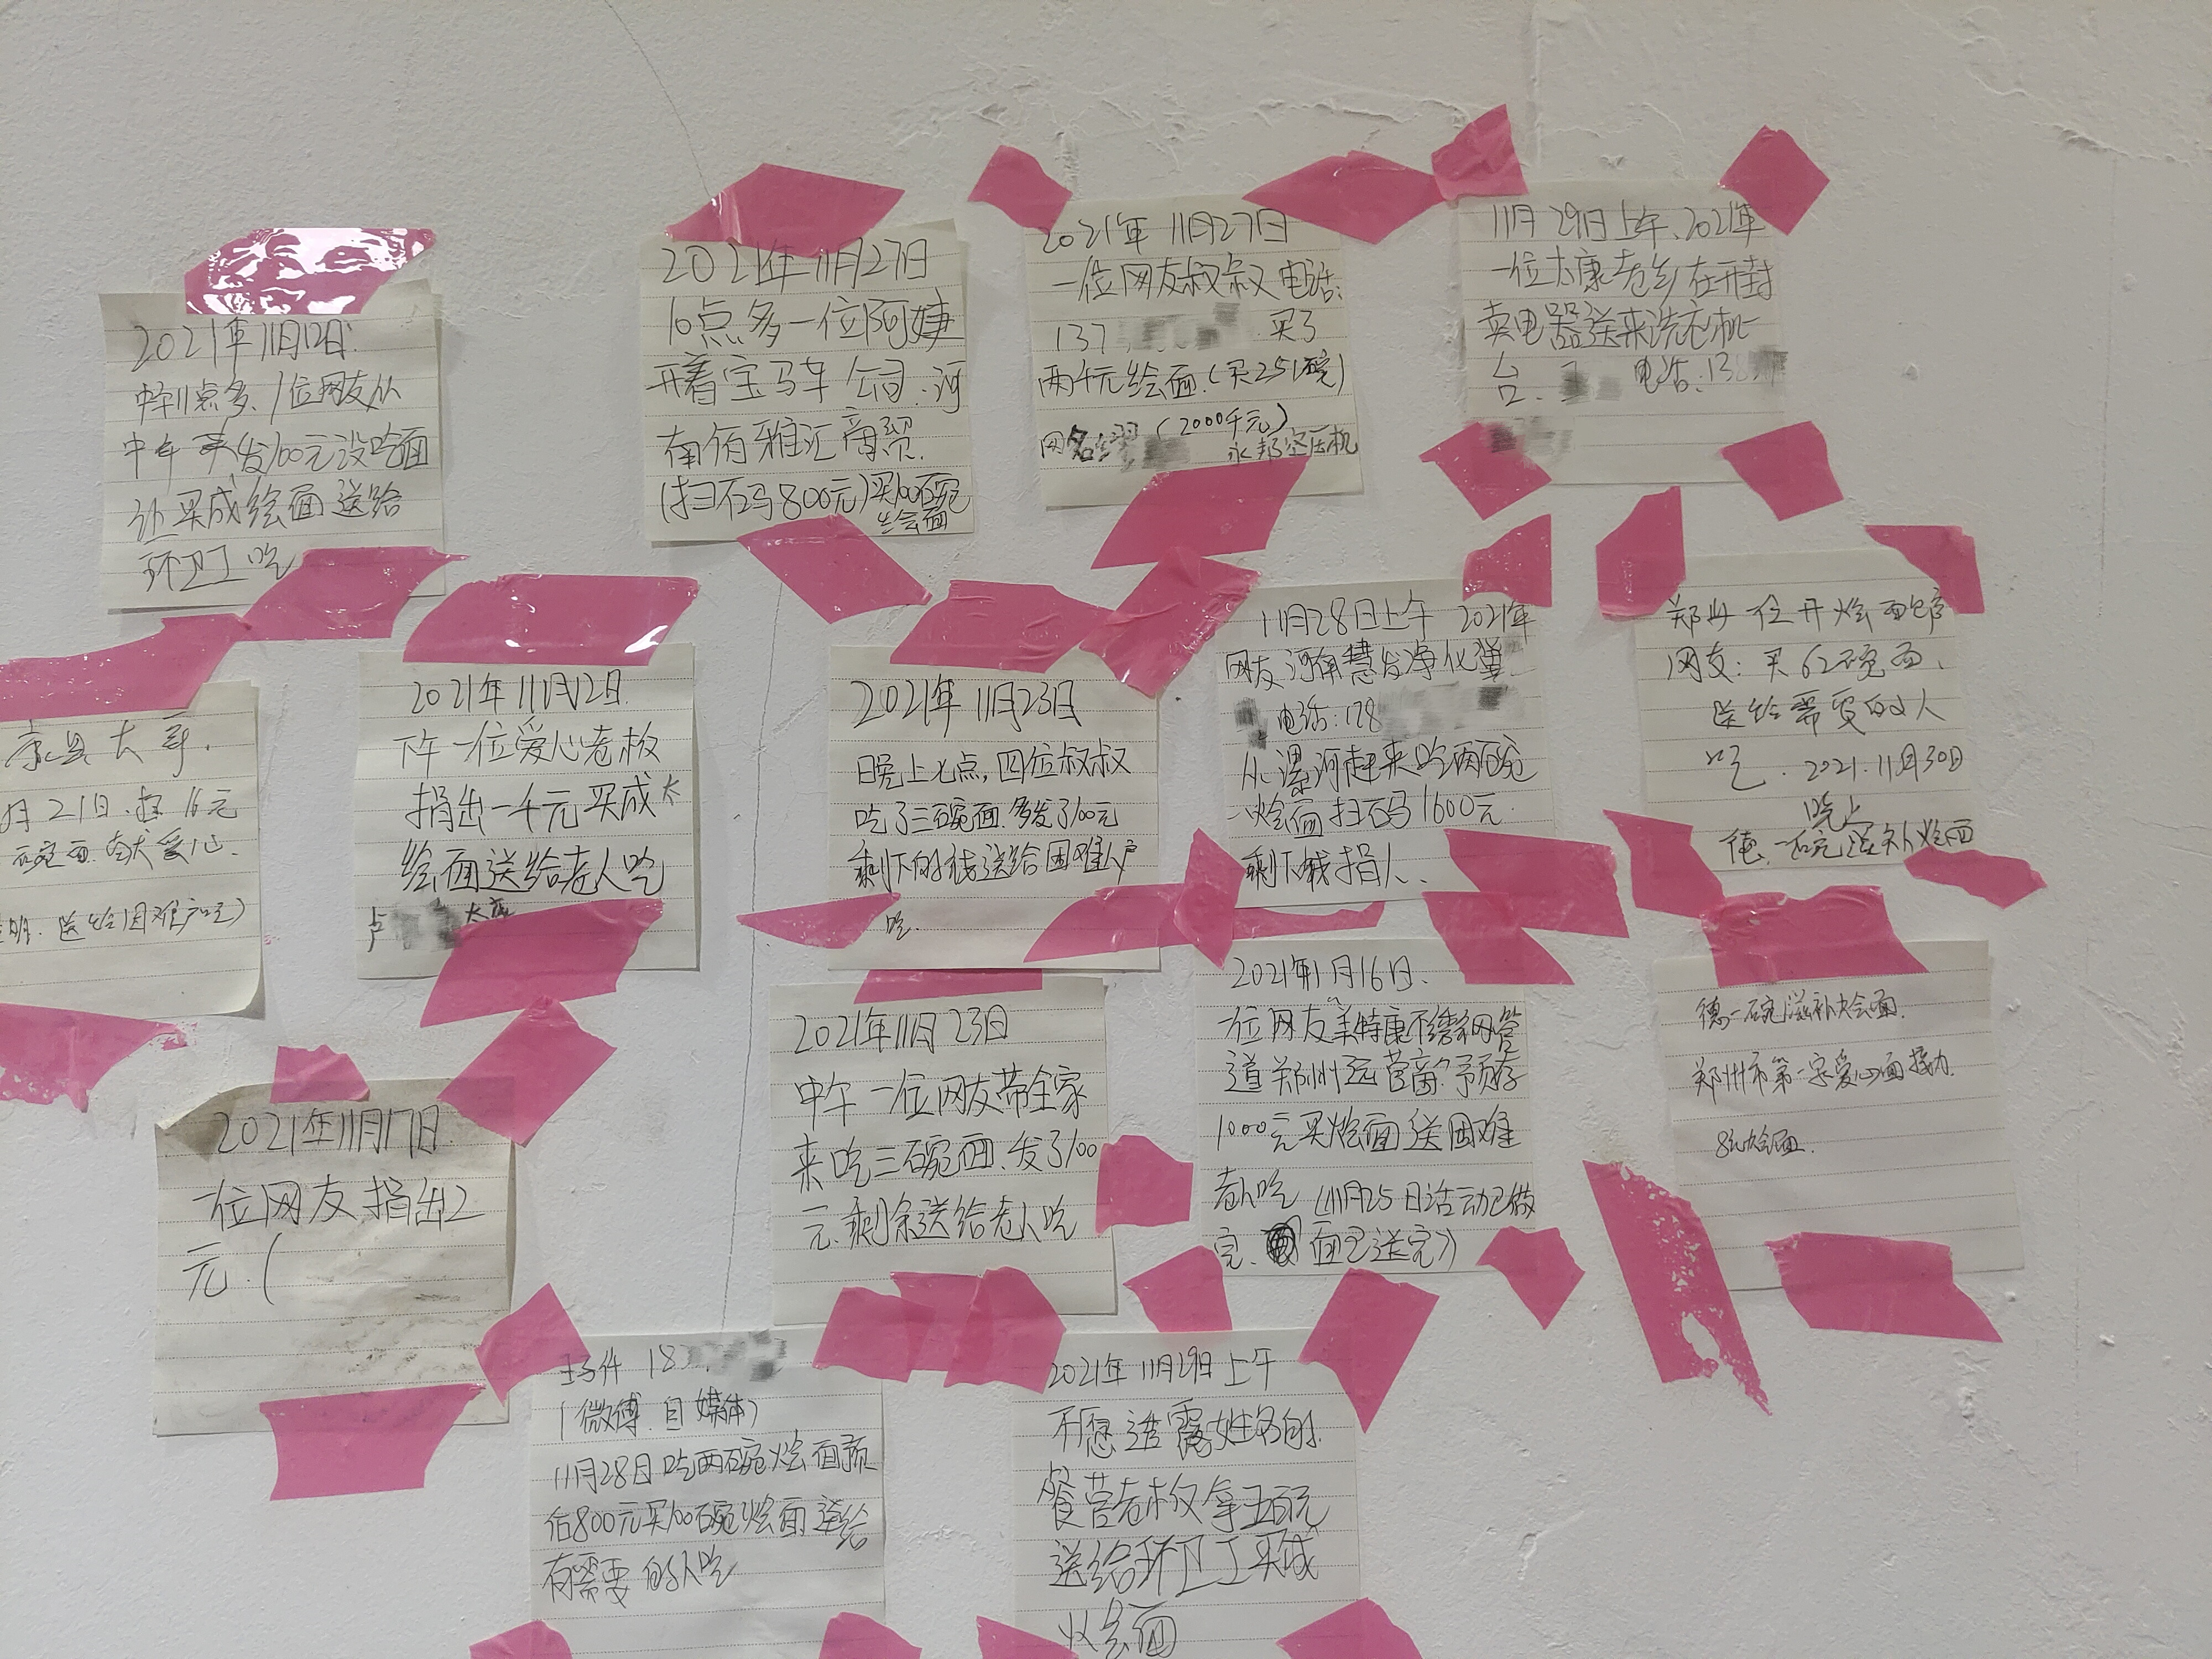 2021年11月12日:
中午11点多、1位网友从
中牟来发100元没吃面
让买成绘面送给
环卫工吃
2021年11月27日
10点多一位阿姨
开着宝马车公司.河
南佰雅汇商贸.
(扫码800元)买100碗
绘面
2021年11月27日
一位网友叔叔电话:
137 买了
两千元绘面.(买251碗)
(2000千元)
网名 永邦空压机
11月29日上午、2021年
一位太康老乡在开封
卖电器送来洗衣机一
台. 电话:138
大哥.
月21日.
碗面.献爱心.
送给困难户吃)
2021年11月12日.
下午一位爱心老板
捐出一千元买成
绘面送给老人吃
卢
2021年11月23日
晚上七点,四位叔叔
吃了三碗面.多发了100元
剩下的钱送给困难户
吃.
11月28日上午 2021年
网友河南慧发净化
电话:178
从漯河赶来吃两碗
烩面扫码1600元.
剩下钱捐人.
郑州一位开烩面
网友:买62碗面、
送给需要的人
吃.2021.11月30日
晚上
德一碗滋补烩面
2021年11月17日.
一位网友捐出2
元.(
2021年11月23日
中午一位网友带全家
来吃三碗面、发了100
元.剩余送给老人吃
2021年1月16日.
一位网友美特康不锈钢管
道郑州运营商.予预存
1000元买烩面送困难
老人吃(11月25日活动已做
完、面已送完)
德一碗滋补烩面.
郑州市第一家爱心面接力.
8元烩面.
18
(微博.自媒体)
11月28日吃两碗烩面预
付800元买100碗烩面送给
有需要的人吃
2021年11月29日上午
不愿透露姓名的.
餐营老板拿五百元
送给环卫工买成
烩面